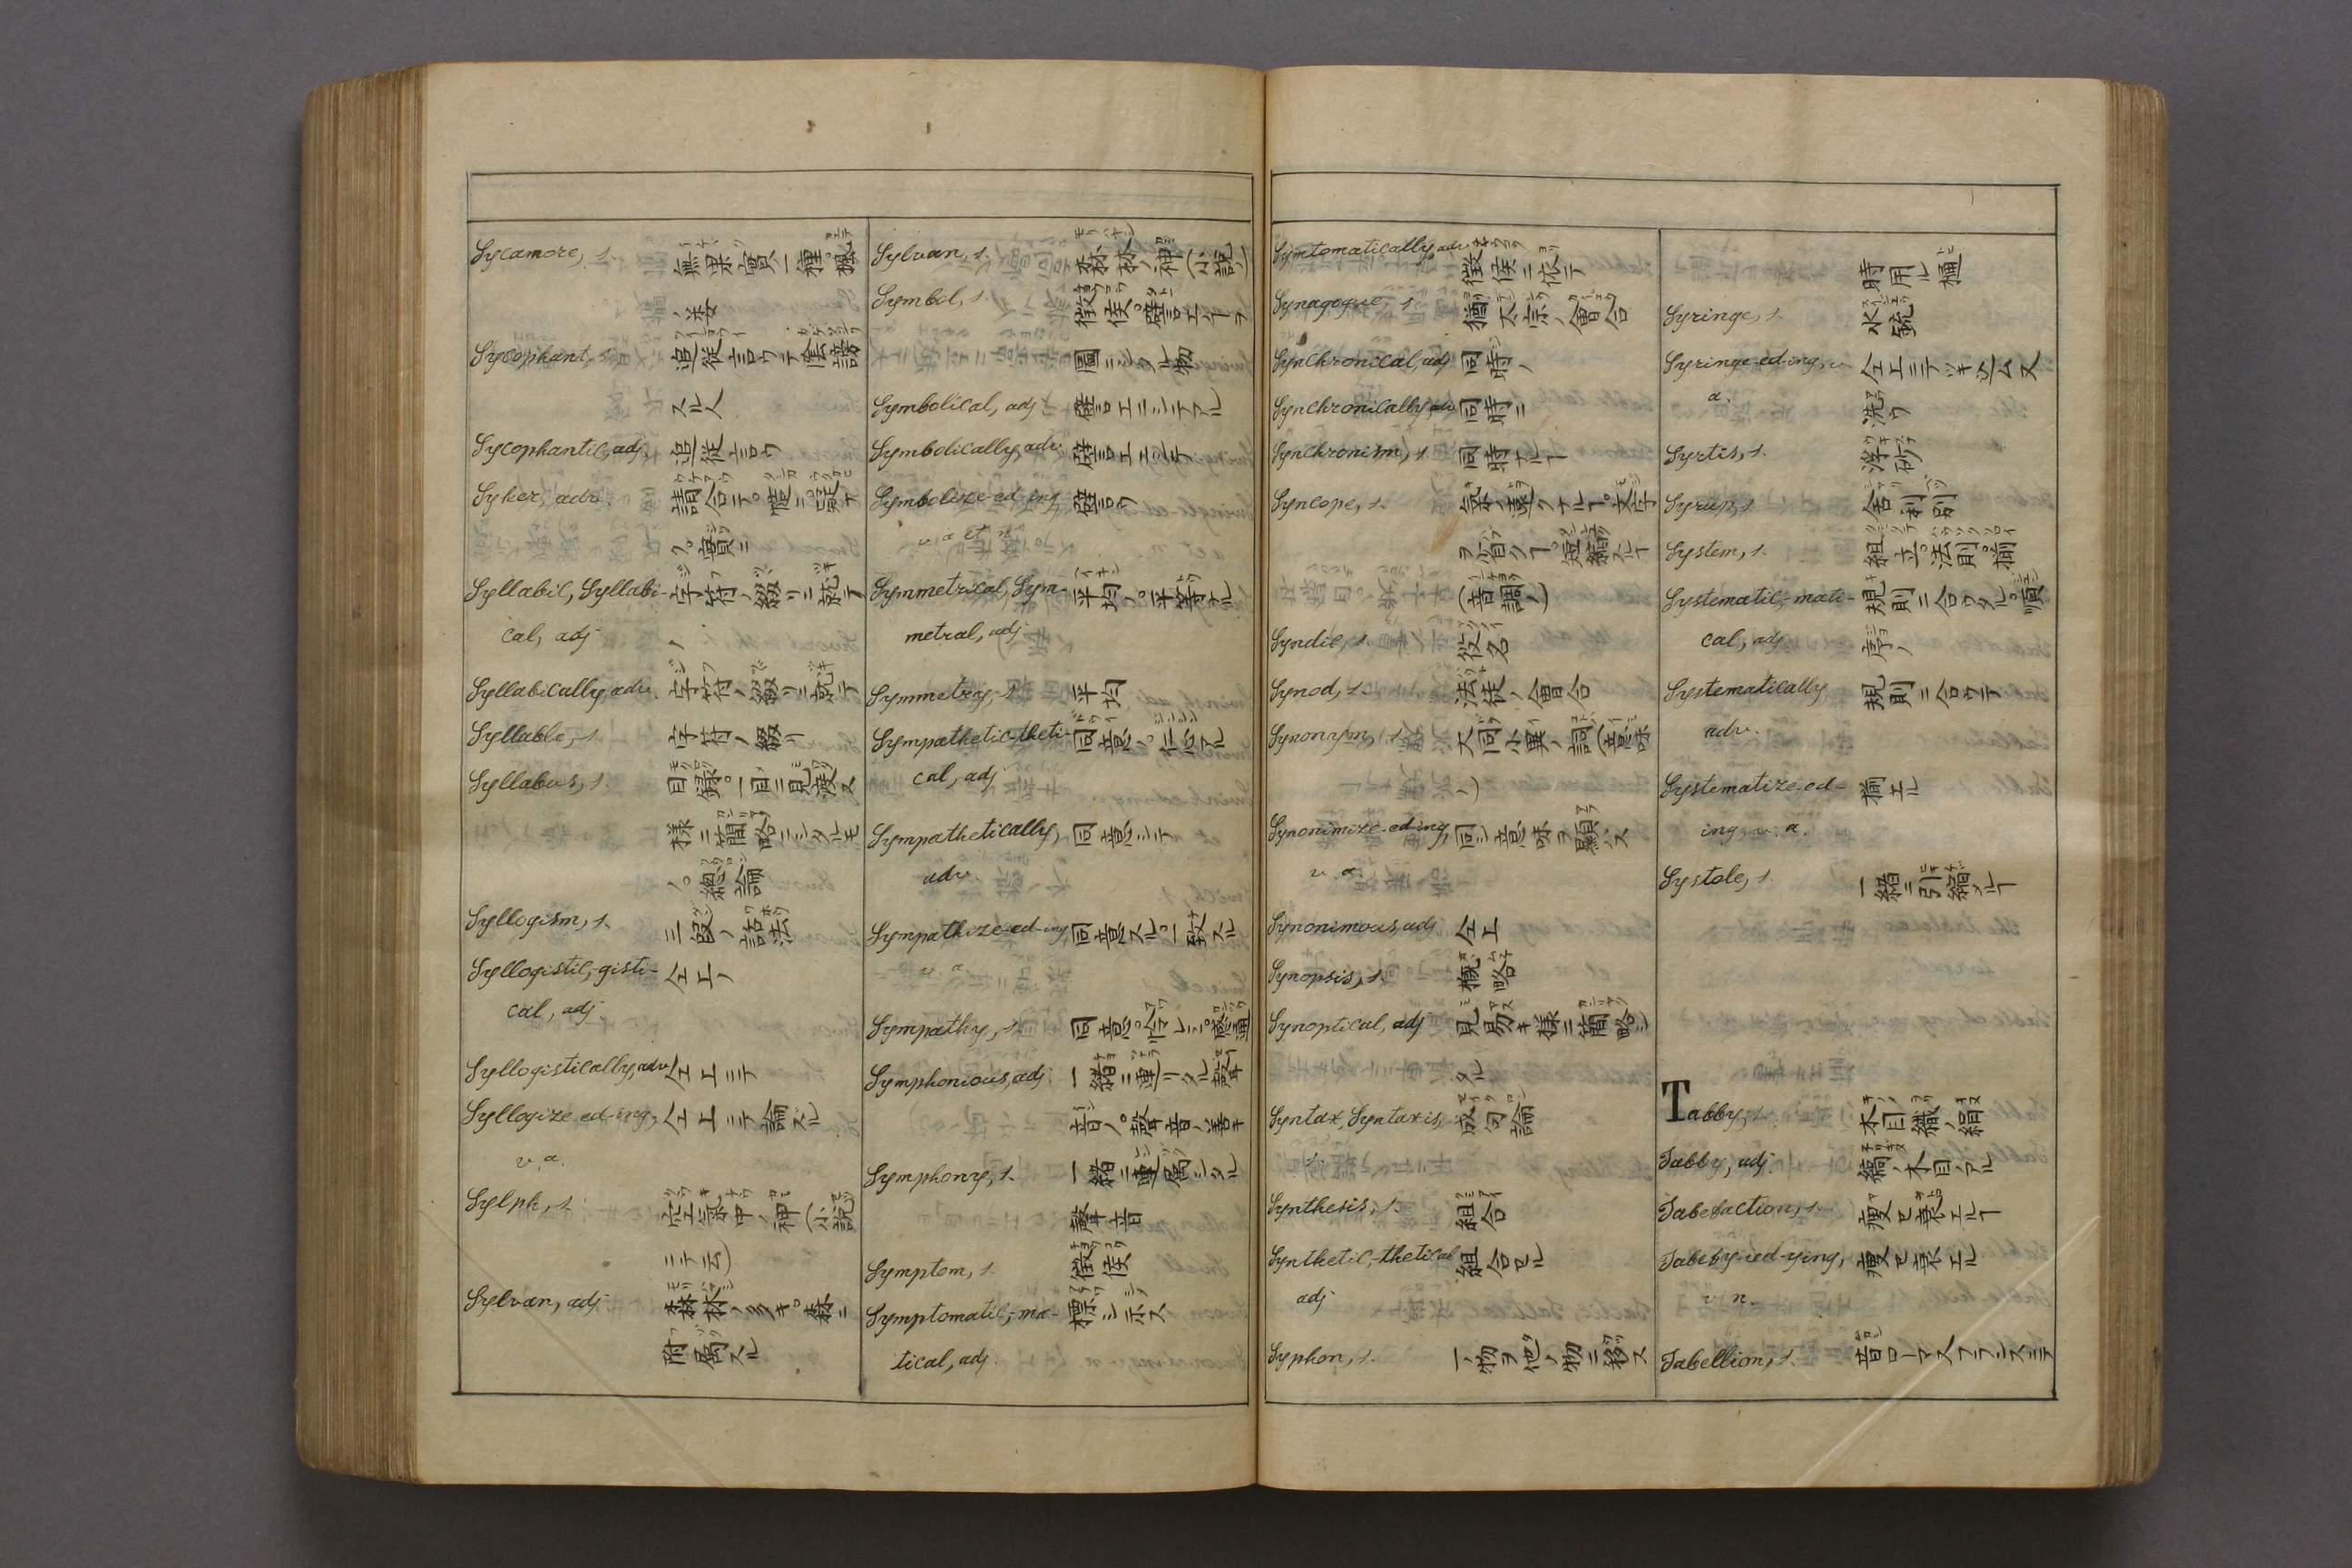 Sycamore, s. 無果實ノ一種。楓
ノ樹
Sycophant, s. 追從言ウテ陰謗
スル人
Sycophantic, adj. 追從言ウ
Syker, adv. 請合テ。慥ニ。疑ナ
ク。實ニ
Syllabic, Syllabi- 字符ノ綴リニ就テ
cal, adj. ノ
Syllabically, adv. 字符ノ綴リニ就テ
Syllable, s. 字符ノ綴リ
Syllabus, s. 目録。一目ニ見渡ス
樣ニ簡略ニシタルモ
ノ。總論
Syllogism, s. 三段ノ語法
Syllogistic,-gisti- 仝上ノ
cal, adj.
Syllogistically, adv. 仝上ニテ
Syllogize-ed-ing, 仝上ニテ論ズル
v. a.
Sylph, s. 空氣中ノ神(小説
ニテ云)
Sylvan, adj. 森林ノ多キ。森ニ
附属スル
Sylvan, s. 森林ノ神(小説)
Symbol, s. 徴候。譬言エヿヲ
圖ニシタル物
Symbolical, adj. 譬言エニシテアル
Symbolically, adv. 譬言エニシテ
Symbolize-ed-ing, 譬言ウ
v. a et n.
Symmetrical, Sym- 平均ノ。平等ナル
metral, adj.
Symmetry, s. 平均
Sympathetic-theti- 同意ノ。仁心アル
cal, adj.
Sympathetically, 同意シテ
adv.
Sympathize-ed-ing, 同意スル。一致スル
v. n.
Sympathy, s. 同意。憐レミ。感通
Symphonious, adj. 一緒ニ連リタル聲
音ノ。聲音ノ善キ
Symphony, s. 一緒ニ連属シタル
聲音
Symptom, s. 徴候
Symptomatic,-ma- 標シ示ス
tical, adj.
Symtomatically, adv. 徴候ニ依テ
Synagogue, s. 猶太宗ノ會合
Synchronical, adj. 同時ノ
Synchronically, adv. 同時ニ
Synchronism, s. 同時ナルヿ
Syncope, s. 氣ノ遠クナルヿ。文字
ヲ省クヿ。短縮スルヿ
(音調ノ)
Syndic, s. 役名
Synod, s. 法徒ノ會合
Synonym, s. 大同小異ノ詞(意味
ノ)
Synonimize-ed-ing, 同シ意味ヲ顯ハス
v. a.
Synonimous, adj. 仝上
Synopsis, s. 概略
Synoptical, adj. 見易キ樣ニ簡略シ
タル
Syntax, Syntaxis, 成句論
s.
Synthesis, s. 組合
Synthetic,-thetical 組合セル
adj.
Syphon, s. 一ノ物ヲ他ノ物ニ移ス
時用ル樋
Syringe, s. 水銃
Syringe-ed-ing, v. 仝上ニテツキ込ム又
a. 洗ウ
Syrtis, s. 浮砂
Syrup, s. 舎利別
System, s. 組立。法則。揃
Systematic,-mati- 規則ニ合ウタル。順
cal, adj. 序ノ
Systematically, 規則ニ合ウテ
adv.
Systematize-ed- 揃エル
ing, v. a.
Systole, s. 一緒ニ引縮メルヿ
Tabby, s. 木目織ノ絹
Tabby, adj. 縞ノ木目ノアル
Tabefaction, s. 痩セ衰エルヿ
Tabefy-ied-ying, 痩セ衰エル
v. n.
Tabellion, s. 昔ローマ又フランスニテ